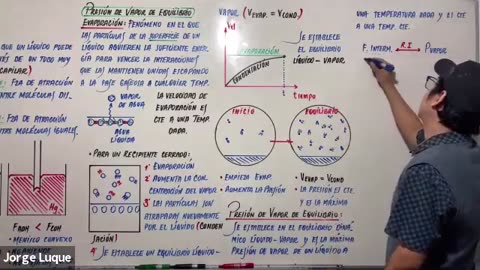 PRESIÓN DE VAPOR DE EQUILIBRIO
EVAPORACIÓN: FENÓMENO EN EL QUE
LAS PARTÍCULAS DE LA SUPERFICIE DE UN
LÍQUIDO ADQUIEREN LA SUFICIENTE ENER-
GÍA PARA VENCER LA INTERACCIONES
QUE LAS MANTIENEN UNIDAS ESCAPANDO
A LA FASE GASEOSA A CUALQUIER TEMP.
VAPOR
DE AGUA
AGUA
LÍQUIDA
LA VELOCIDAD DE
EVAPORACIÓN ES
CTE A UNA TEMP.
DADA.
• PARA UN RECIPIENTE CERRADO:
1º EVAPORACIÓN
2º AUMENTA LA CON
CENTRACIÓN DEL VAPOR
3º LAS PARTÍCULAS SON
ATRAPADAS NUEVAMENTE
POR EL LÍQUIDO (CONDEN
SACIÓN)
4º SE ESTABLECE UN EQUILIBRIO LÍQUIDO-
QUE UN LÍQUIDO PUEDE
DE UN TUBO MUY
CAPILAR)
FZA DE ATRACCIÓN
ENTRE MOLÉCULAS DIS.
FZA DE ATRACCIÓN
MOLÉCULAS IGUALES.
Hg
FADH < FCOH
• MENISCO CONVEXO
VAPOR (VEVAP. = VCOND)
Vd
EVAPORACIÓN
CONDENSACIÓN
t
tiempo
SE ESTABLECE
EL EQUILIBRIO
LÍQUIDO - VAPOR
INICIO
EQUILIBRIO
• EMPIEZA EVAP.
• AUMENTA LA PRESIÓN
• VEVAP = VCOND
• LA PRESIÓN ES CTE.
Y ES LA MÁXIMA
PRESIÓN DE VAPOR DE EQUILIBRIO:
SE ESTABLECE EN EL EQUILIBRIO DINÁ
MICO LÍQUIDO-VAPOR Y ES LA MÁXIMA
PRESIÓN DE VAPOR DE UN LÍQUIDO A
UNA TEMPERATURA DADA Y ES CTE
A UNA TEMP. CTE.
F. INTERM. R.I. PVAPOR
Jorge Luque